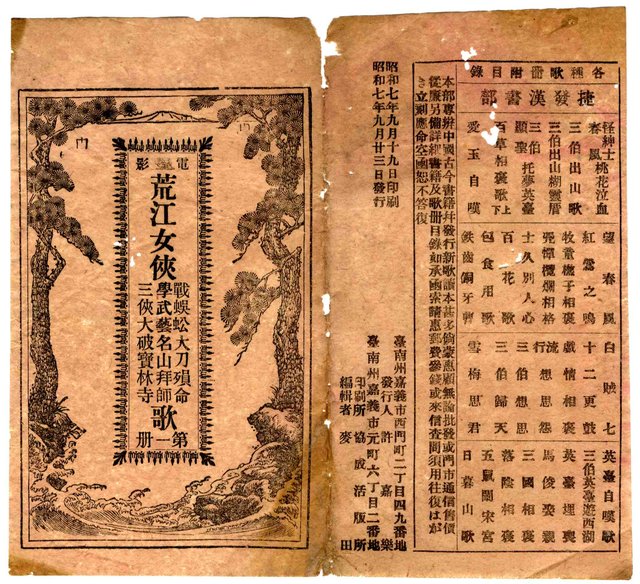 各種歌冊附目錄
捷發漢書部
怪紳士桃花泣血
春風
三伯出山歌
三伯出山糊靈厝
三伯顯聖托夢英臺
百草相褒歌上下
愛玉自嘆
望春風
紅鶯之鳴
牧童樵子相褒
士久別人心
百花歌
包食用歌
鉄齒銅牙
白賊七
十二更鼓
戲情相褒
三伯想思
三伯歸天
雪梅思君
英臺自嘆歌
三伯英臺遊西湖
英臺埋喪
馬俊娶親
三國相褒
落陰相褒
五鼠鬧宋宮
日暮山歌
本部專辦中國古今書籍幷發行新歌讀本甚多倘蒙惠顧無論批發或門市通信售價
從廉另備詳細書籍及歌冊目錄如承函索請惠郵費參錢或來信查問須用往復はが
き立刻應命空函恕不答復
昭和七年九月十九日印刷
昭和七年九月廿三日發行
臺南州嘉義市西門町二丁目四九番地
發行人 許嘉樂
臺南州嘉義市元町六丁目二番地
印刷所 協成活版所
編輯者 麥田
電影
荒江女俠
戰蜈蚣大刀殞命
學武藝名山拜師
三俠大破寶林寺
歌
第一册